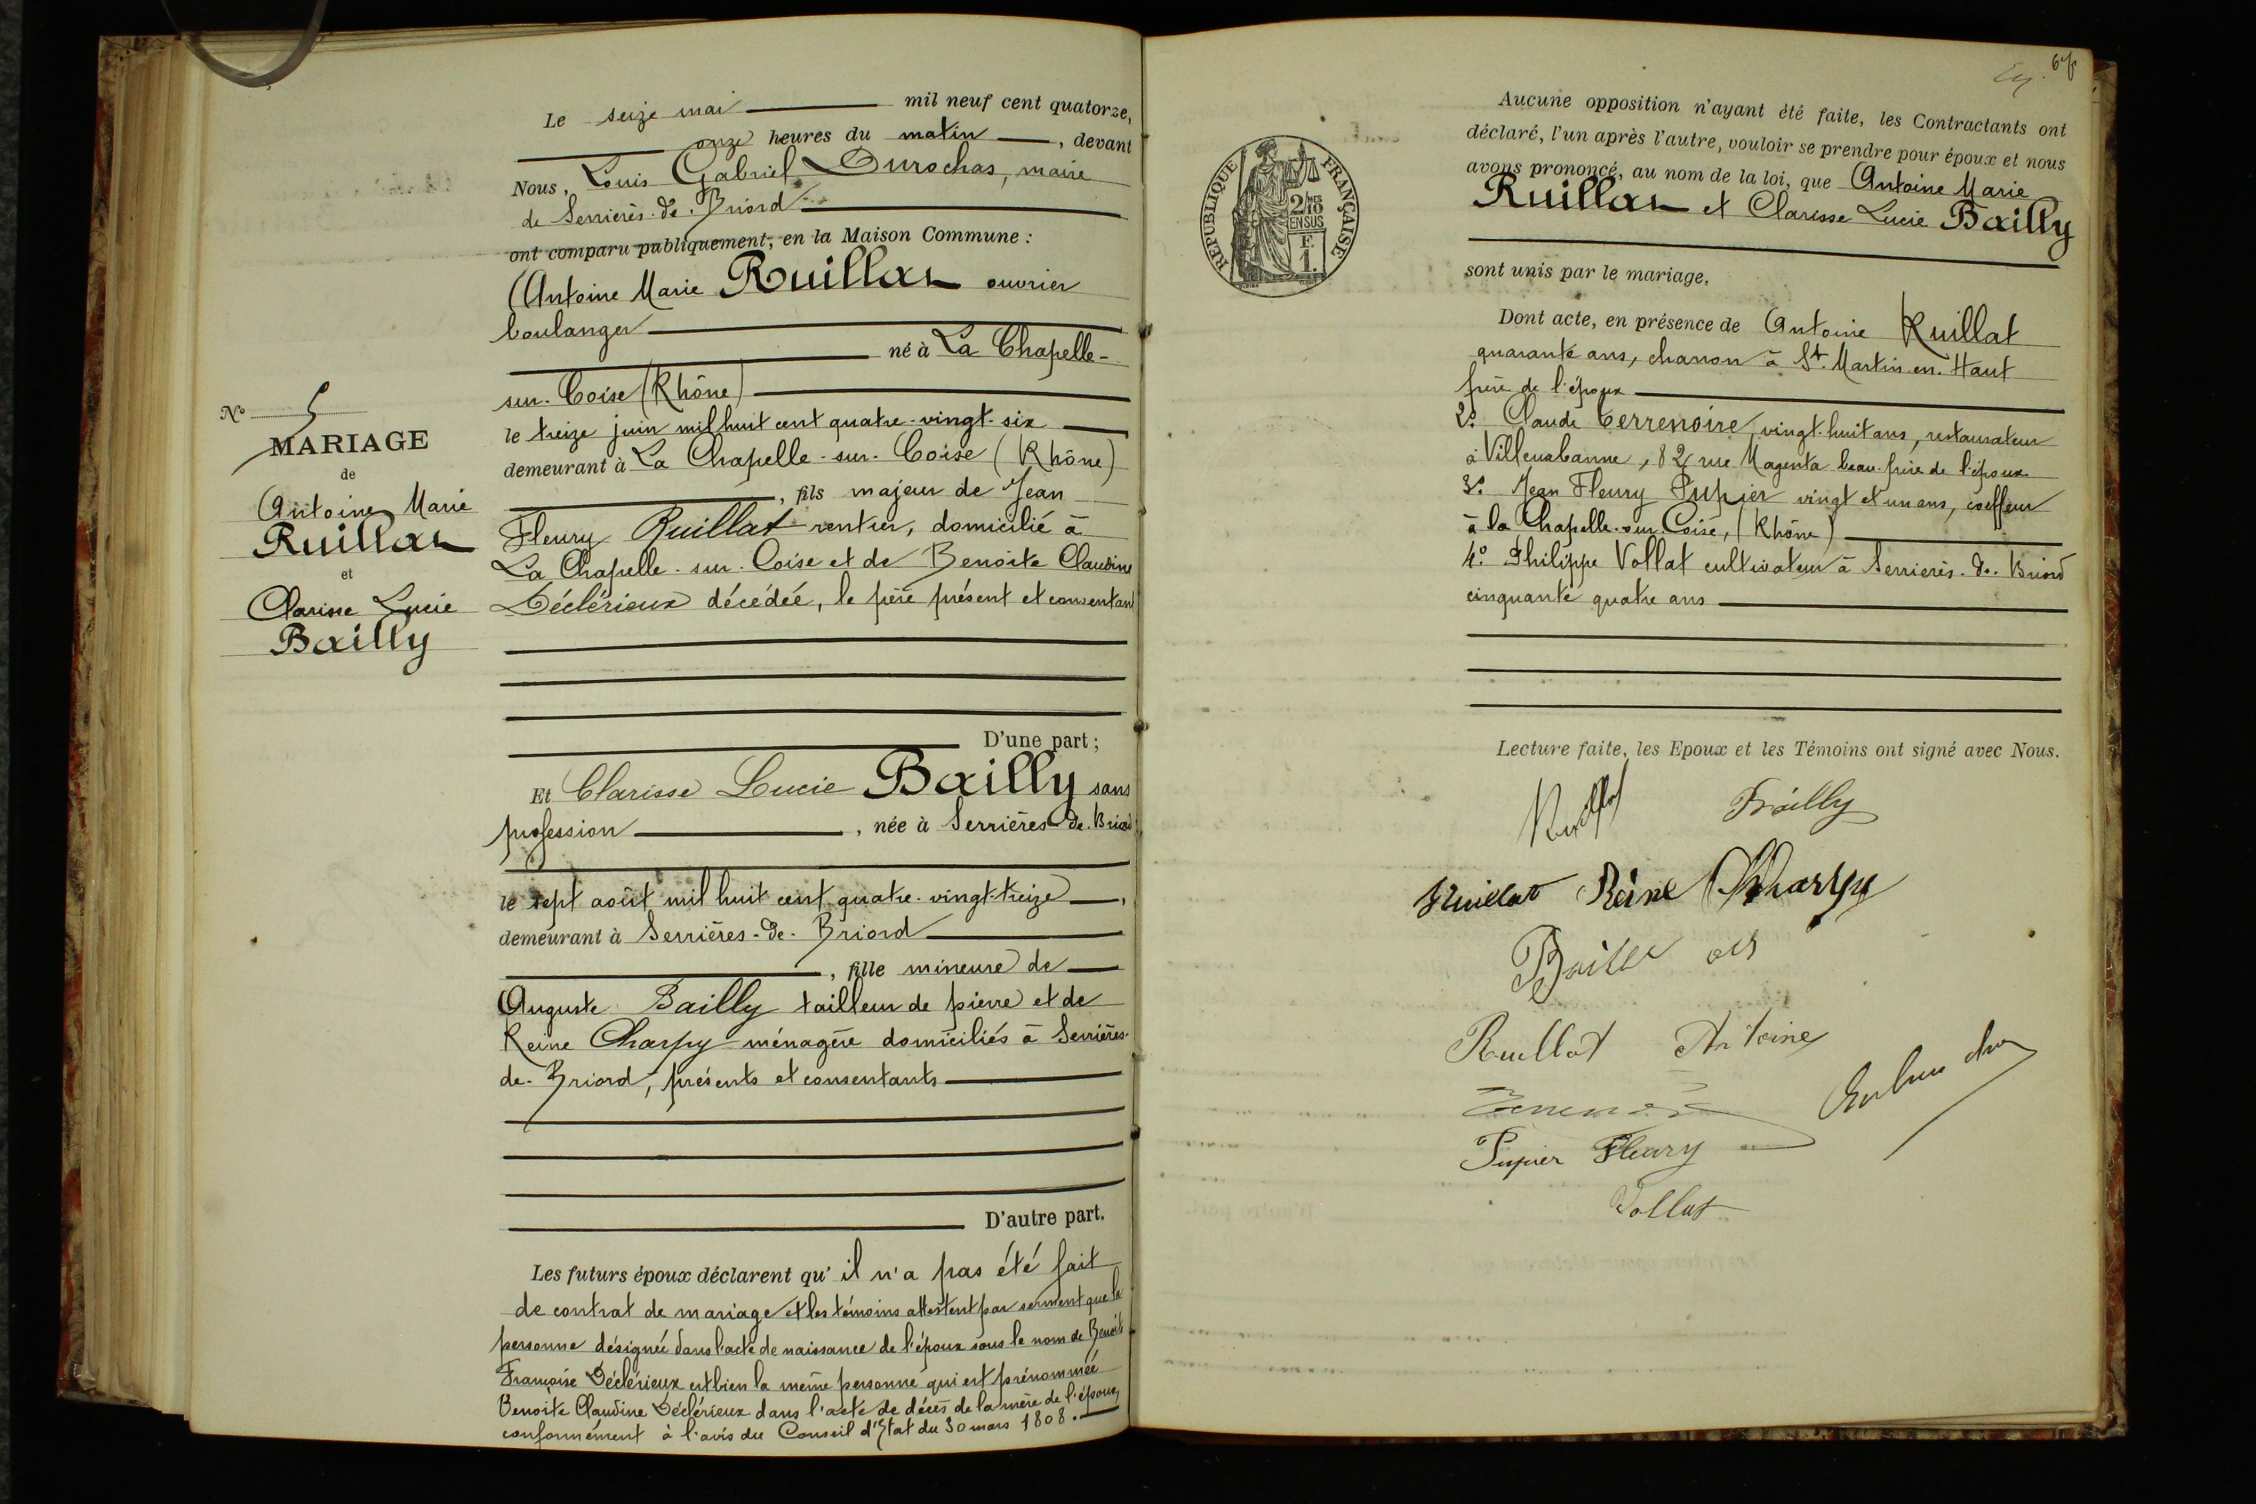 Le seize mai mil neuf cent quatorze,
onze heures du matin, devant
Nous, Louis Gabriel Durochas, maire
de Serrières-de-Briord
ont comparu publiquement, en la Maison Commune :
Antoine Marie Ruillat ouvrier
boulanger
né à La Chapelle-
sur-Coise (Rhône)
le treize juin mil huit cent quatre-vingt-six
demeurant à La Chapelle-sur-Coise (Rhône)
, fils majeur de Jean
Fleury Ruillat rentier, domicilié à
La Chapelle-sur-Coise et de Benoite Claudine
Déclérieux décédée, le père présent et consentant
D'une part ;
Et Clarisse Lucie Bailly sans
profession, née à Serrières-de-Briord
le sept août mil huit cent quatre-vingt-treize,
demeurant à Serrières-de-Briord
, fille mineure de
Auguste Bailly tailleur de pierre et de
Reine Charpy ménagère domiciliés à Serrières-
de-Briord, présents et consentants
D'autre part.
Les futurs époux déclarent qu'il n'a pas été fait
de contrat de mariage et les témoins attestent par serment que la
personne désignée dans l'acte de naissance de l'époux sous le nom de Benoite
Françoise Déclérieux est bien la même personne qui est prénommée
Benoite Claudine Déclérieux dans l'acte de décès de la mère de l'époux,
conformément à l'avis du Conseil d'Etat du 30 mars 1808.
N° 5
MARIAGE
de
Antoine Marie
Ruillat
et
Clarisse Lucie
Bailly
67
Aucune opposition n'ayant été faite, les Contractants ont
déclaré, l'un après l'autre, vouloir se prendre pour époux et nous
avons prononcé, au nom de la loi, que Antoine Marie
Ruillat et Clarisse Lucie Bailly
sont unis par le mariage.
Dont acte, en présence de Antoine Ruillat
quarante ans, charron à St Martin-en-Haut
frère de l'époux
2° Claude Terrenoire, vingt-huit ans, restaurateur
à Villeurbanne, 82 rue Magenta beau-frère de l'époux
3° Jean Fleury Pupier vingt et un ans, coiffeur
à la Chapelle-sur-Coise, (Rhône)
4° Philippe Vollat cultivateur à Serrières-de-Briord
cinquante quatre ans
Lecture faite, les Epoux et les Témoins ont signé avec Nous.
Ruillat Bailly
Ruillat Reine Charpy
Bailly
Ruillat Antoine
Pupier Fleury
Vollat
REPUBLIQUE FRANÇAISE
2/10
EN SUS
F.
1.